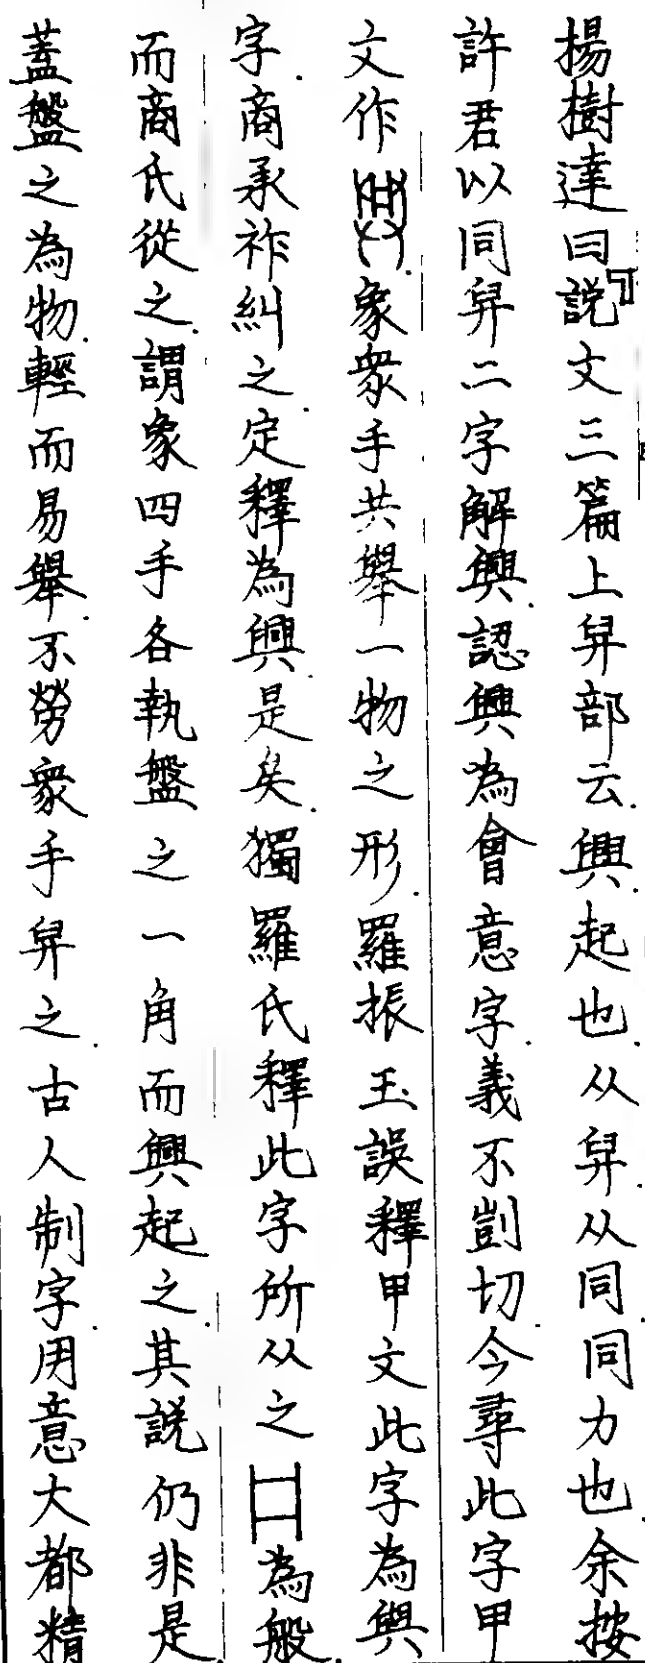 揚樹達曰說文三篇上舁部云興起也从舁从同同力也余按
許君以同舁二字解興認興為會意字義不剴切今尋此字甲
文作象衆手共舉一物之形羅振玉誤釋甲文此字為與
字商承祚糾之定釋為興是矣獨羅氏釋此字所从之為般
而商氏從之謂象四手各執盤之一角而興起之其說仍非是
蓋盤之為物輕而易舉不勞衆手舁之古人制字用意大都精